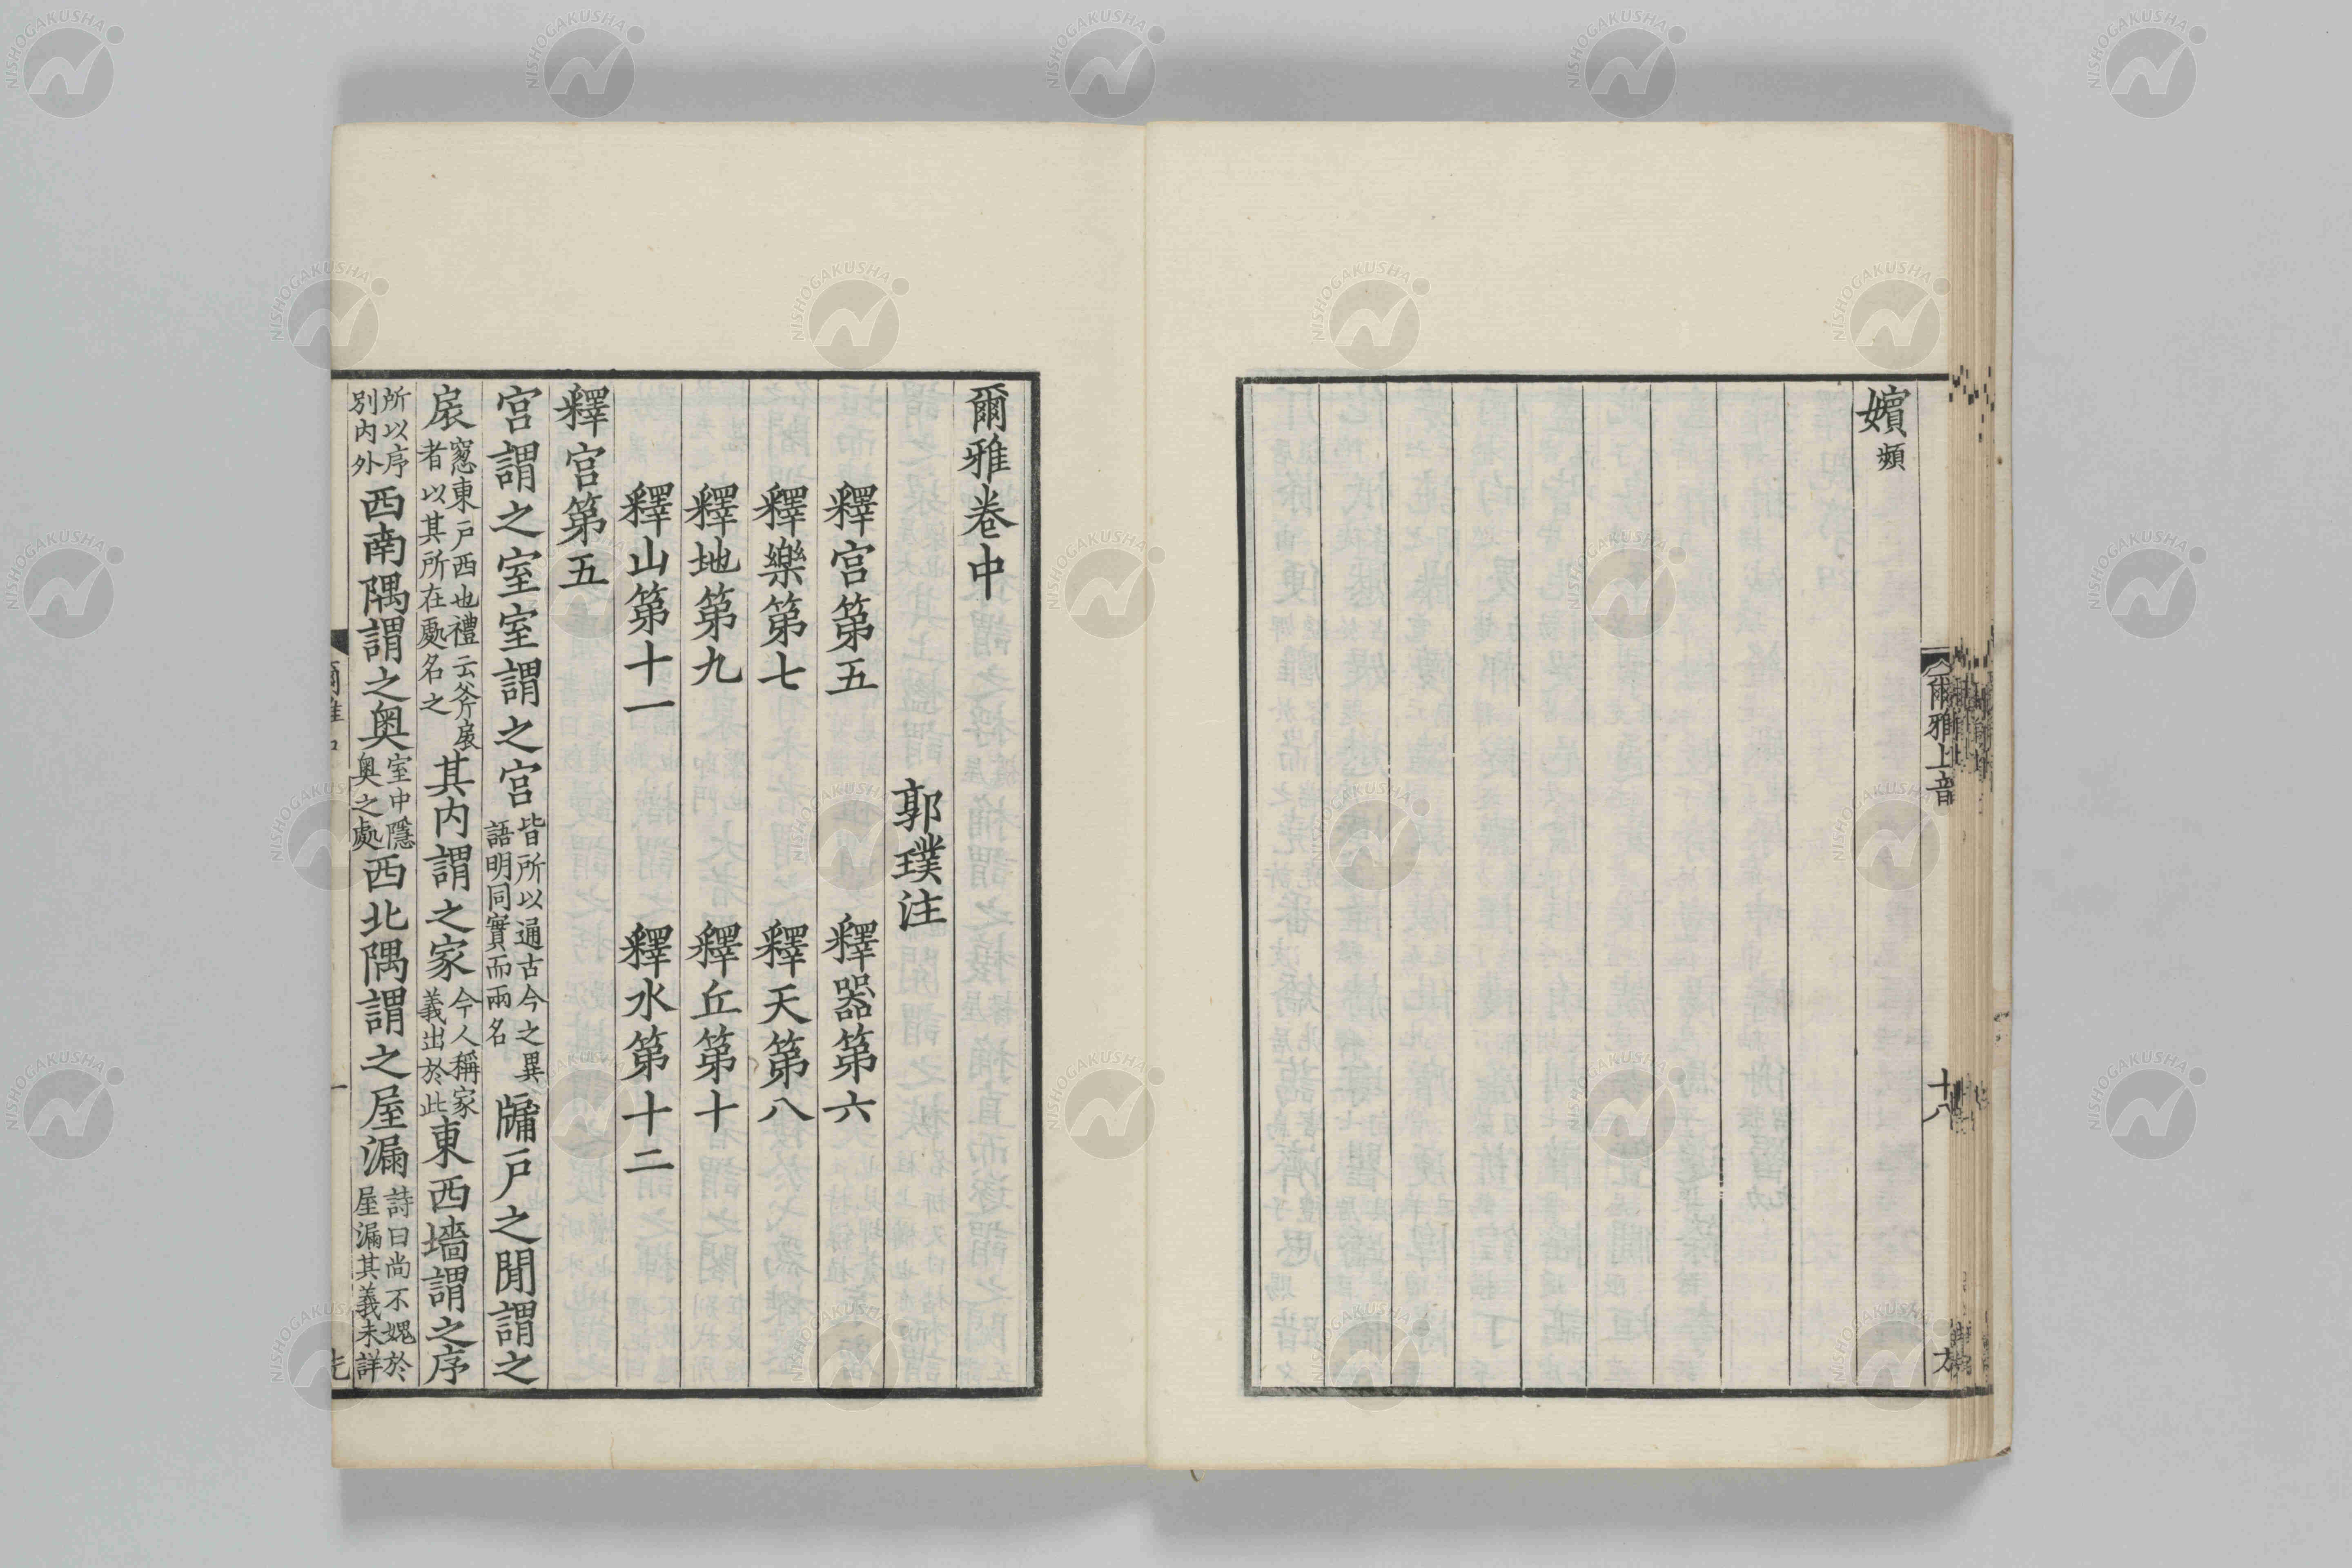 嬪頻
爾雅上音
十八
爾雅卷中
郭璞注
釋宮第五　釋器第六
釋樂第七　釋天第八
釋地第九　釋丘第十
釋山第十一　釋水第十二
釋宮第五
宮謂之室室謂之宮皆所以通古今之異語明同實而兩名牖戸之閒謂之
扆窻東戸西也禮云斧扆者以其所在處名之其内謂之家今人稱家義出於此東西墻謂之序
所以序別内外西南隅謂之奧室中隱奧之處西北隅謂之屋漏詩曰尚不媿於屋漏其義未詳
NISHOGAKUSHA